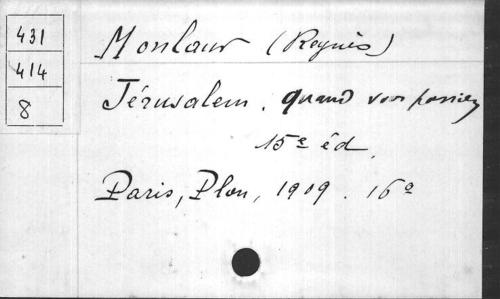 431
414
8
Monlaur (Reynès)
Jérusalem. Quand vous passiez
15e éd.
Paris, Plon, 1909. 16o